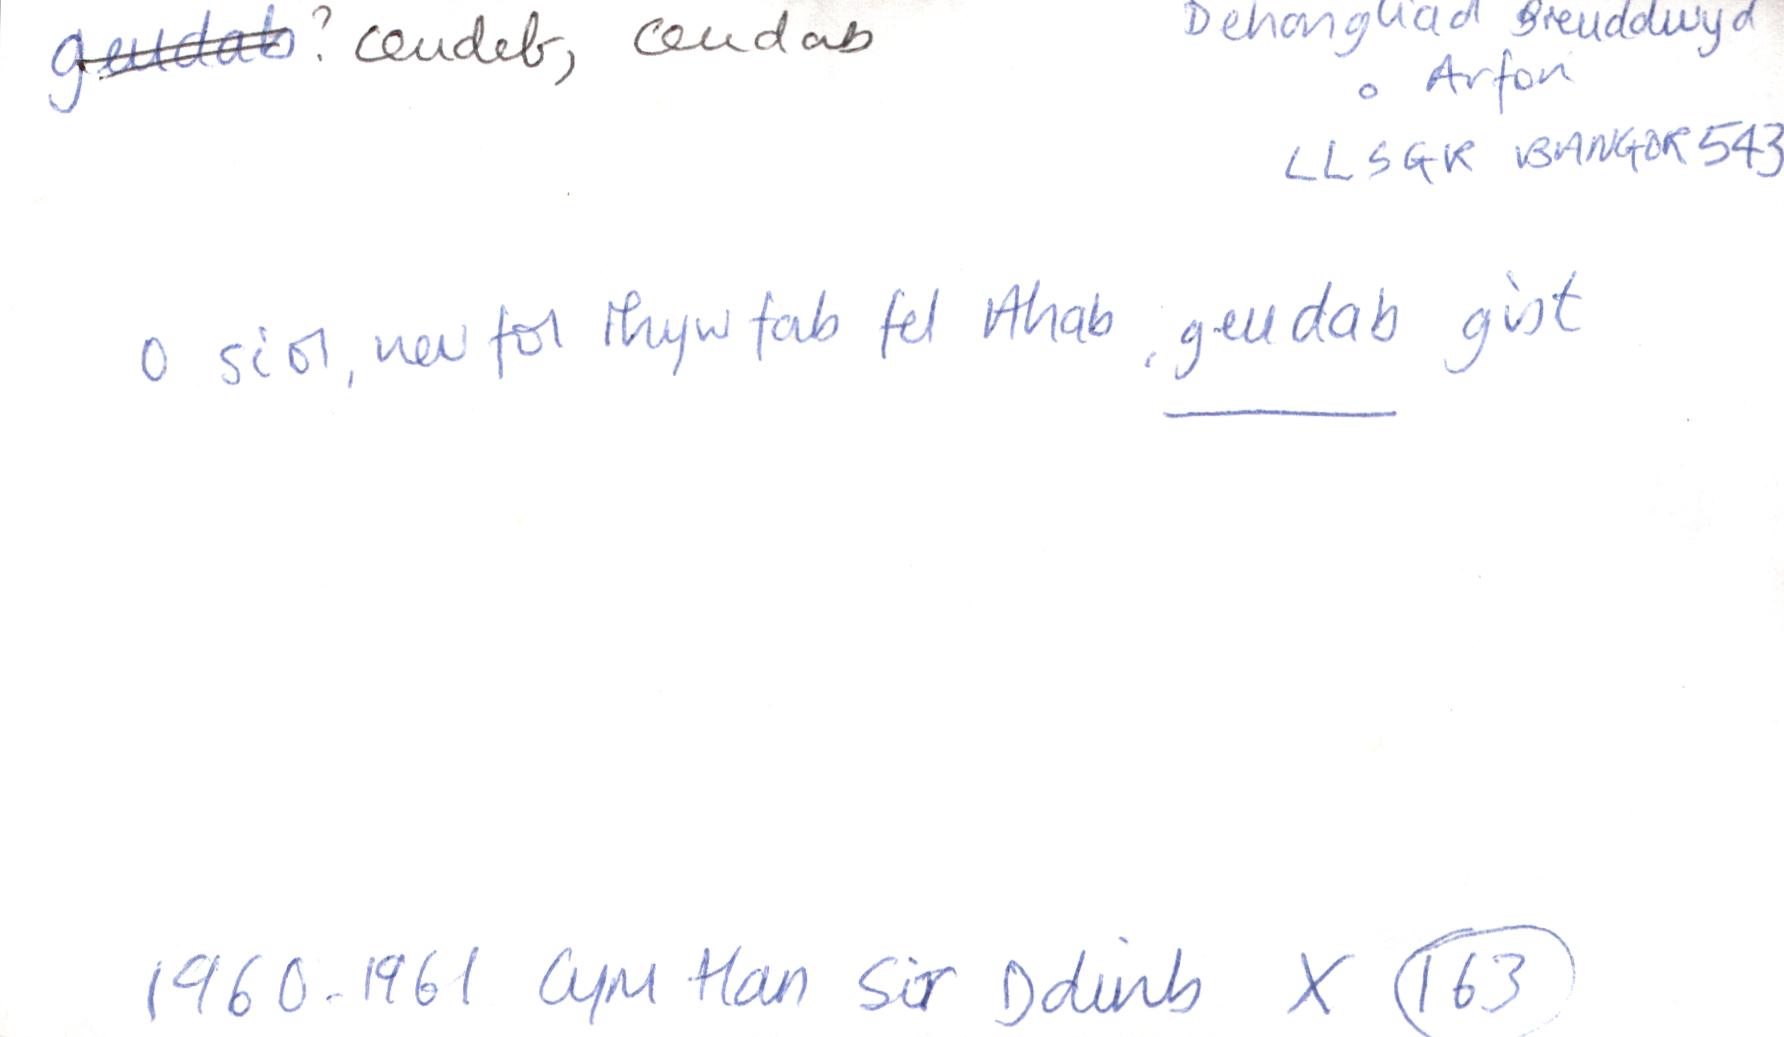 geudab? ceudeb, ceudab
Dehongliad Breuddwyd
o Arfon
LLSGR BANGOR 543
o sior, nev for rhyw fab fel Ahab, geudab gist
1960-1961 Cym Han Sir Ddinb X 163